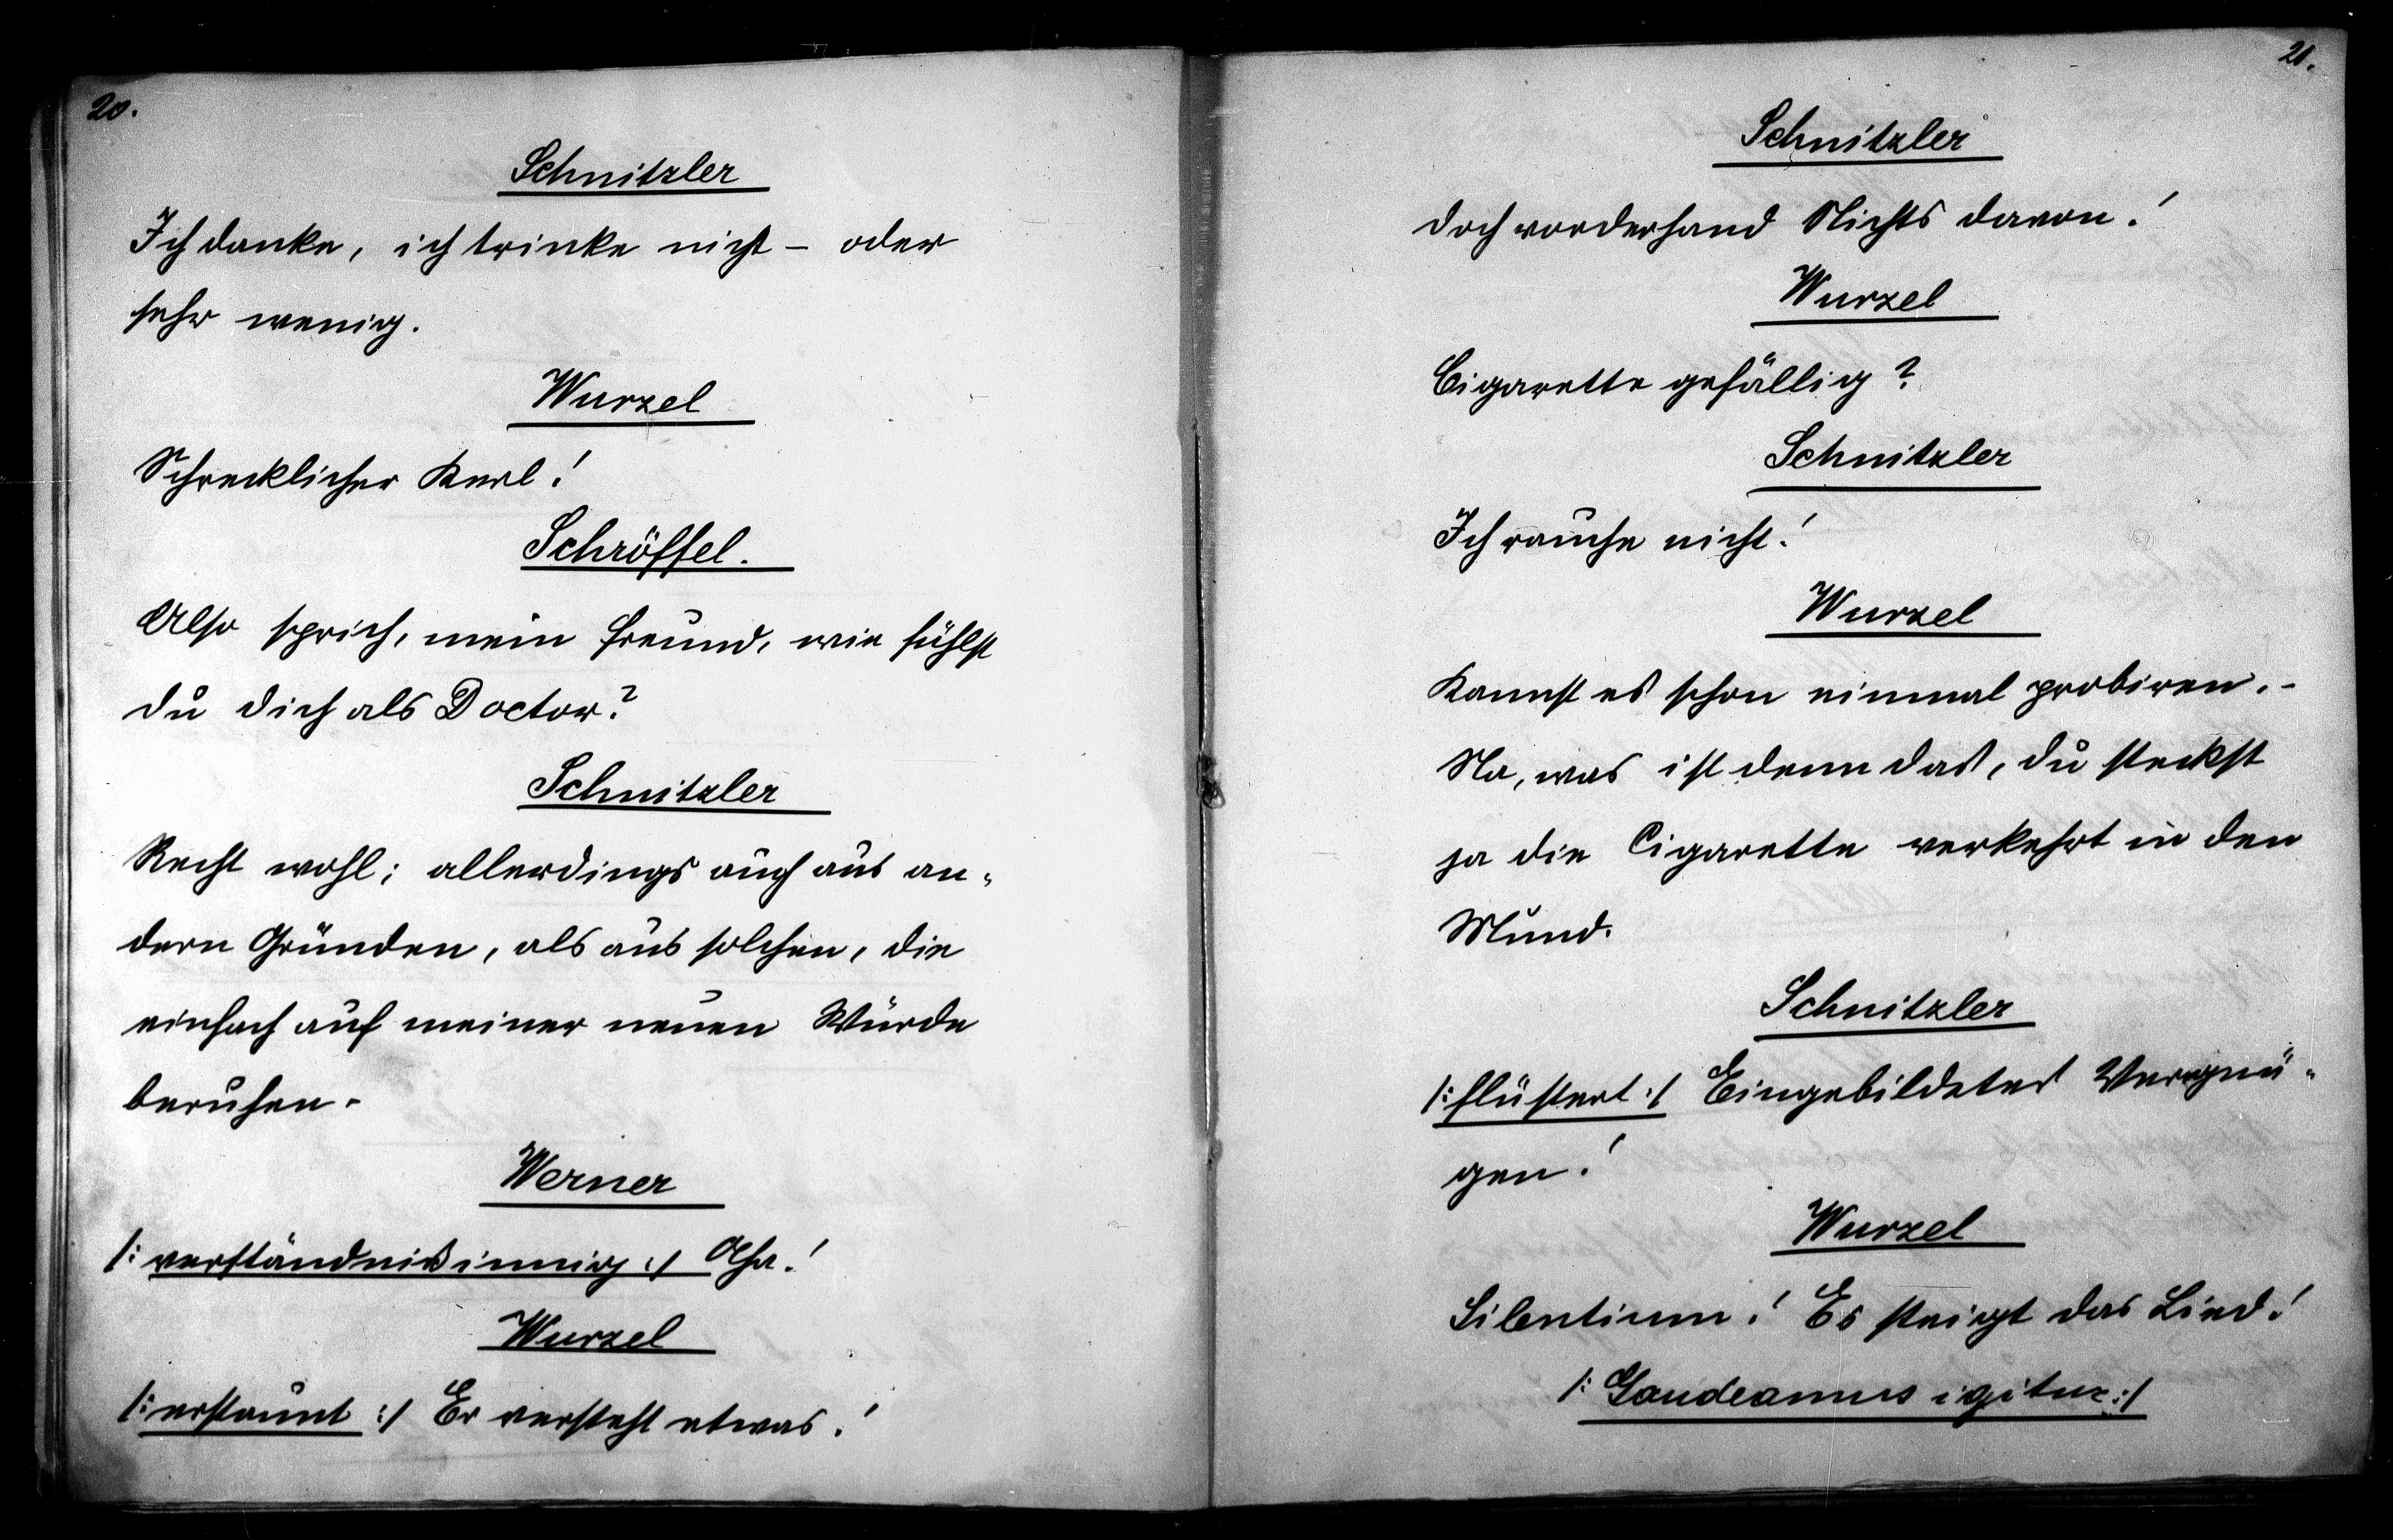 20.
Schnitzler
Ich danke, ich trinke nicht – oder
sehr wenig.
Wurzel
Schrecklicher Kerl!
Schröffel.
Also sprich, mein Freund, wie fühlst
du dich als Doctor?
Schnitzler
Recht wohl; allerdings auch aus an-
dern Gründen, als aus solchen, die
einfach auf meiner neuen Würde
beruhen.
Werner
/: verständnißinnig :/ Aha!
Wurzel
/: erstaunt :/ Er versteht etwas!
21.
Schnitzler
doch vorderhand Nichts davon!
Wurzel
Cigarette gefällig?
Schnitzler
Ich rauche nicht!
Wurzel
Kannst es schon einmal probiren. –
Na, was ist denn das, du steckst
ja die Cigarette verkehrt in den
Mund.
Schnitzler
/: flüstert :/ Eingebildetes Vergnü-
gen!
Wurzel
Silentium! Es steigt das Lied!
/: Gaudeamus igitur :/